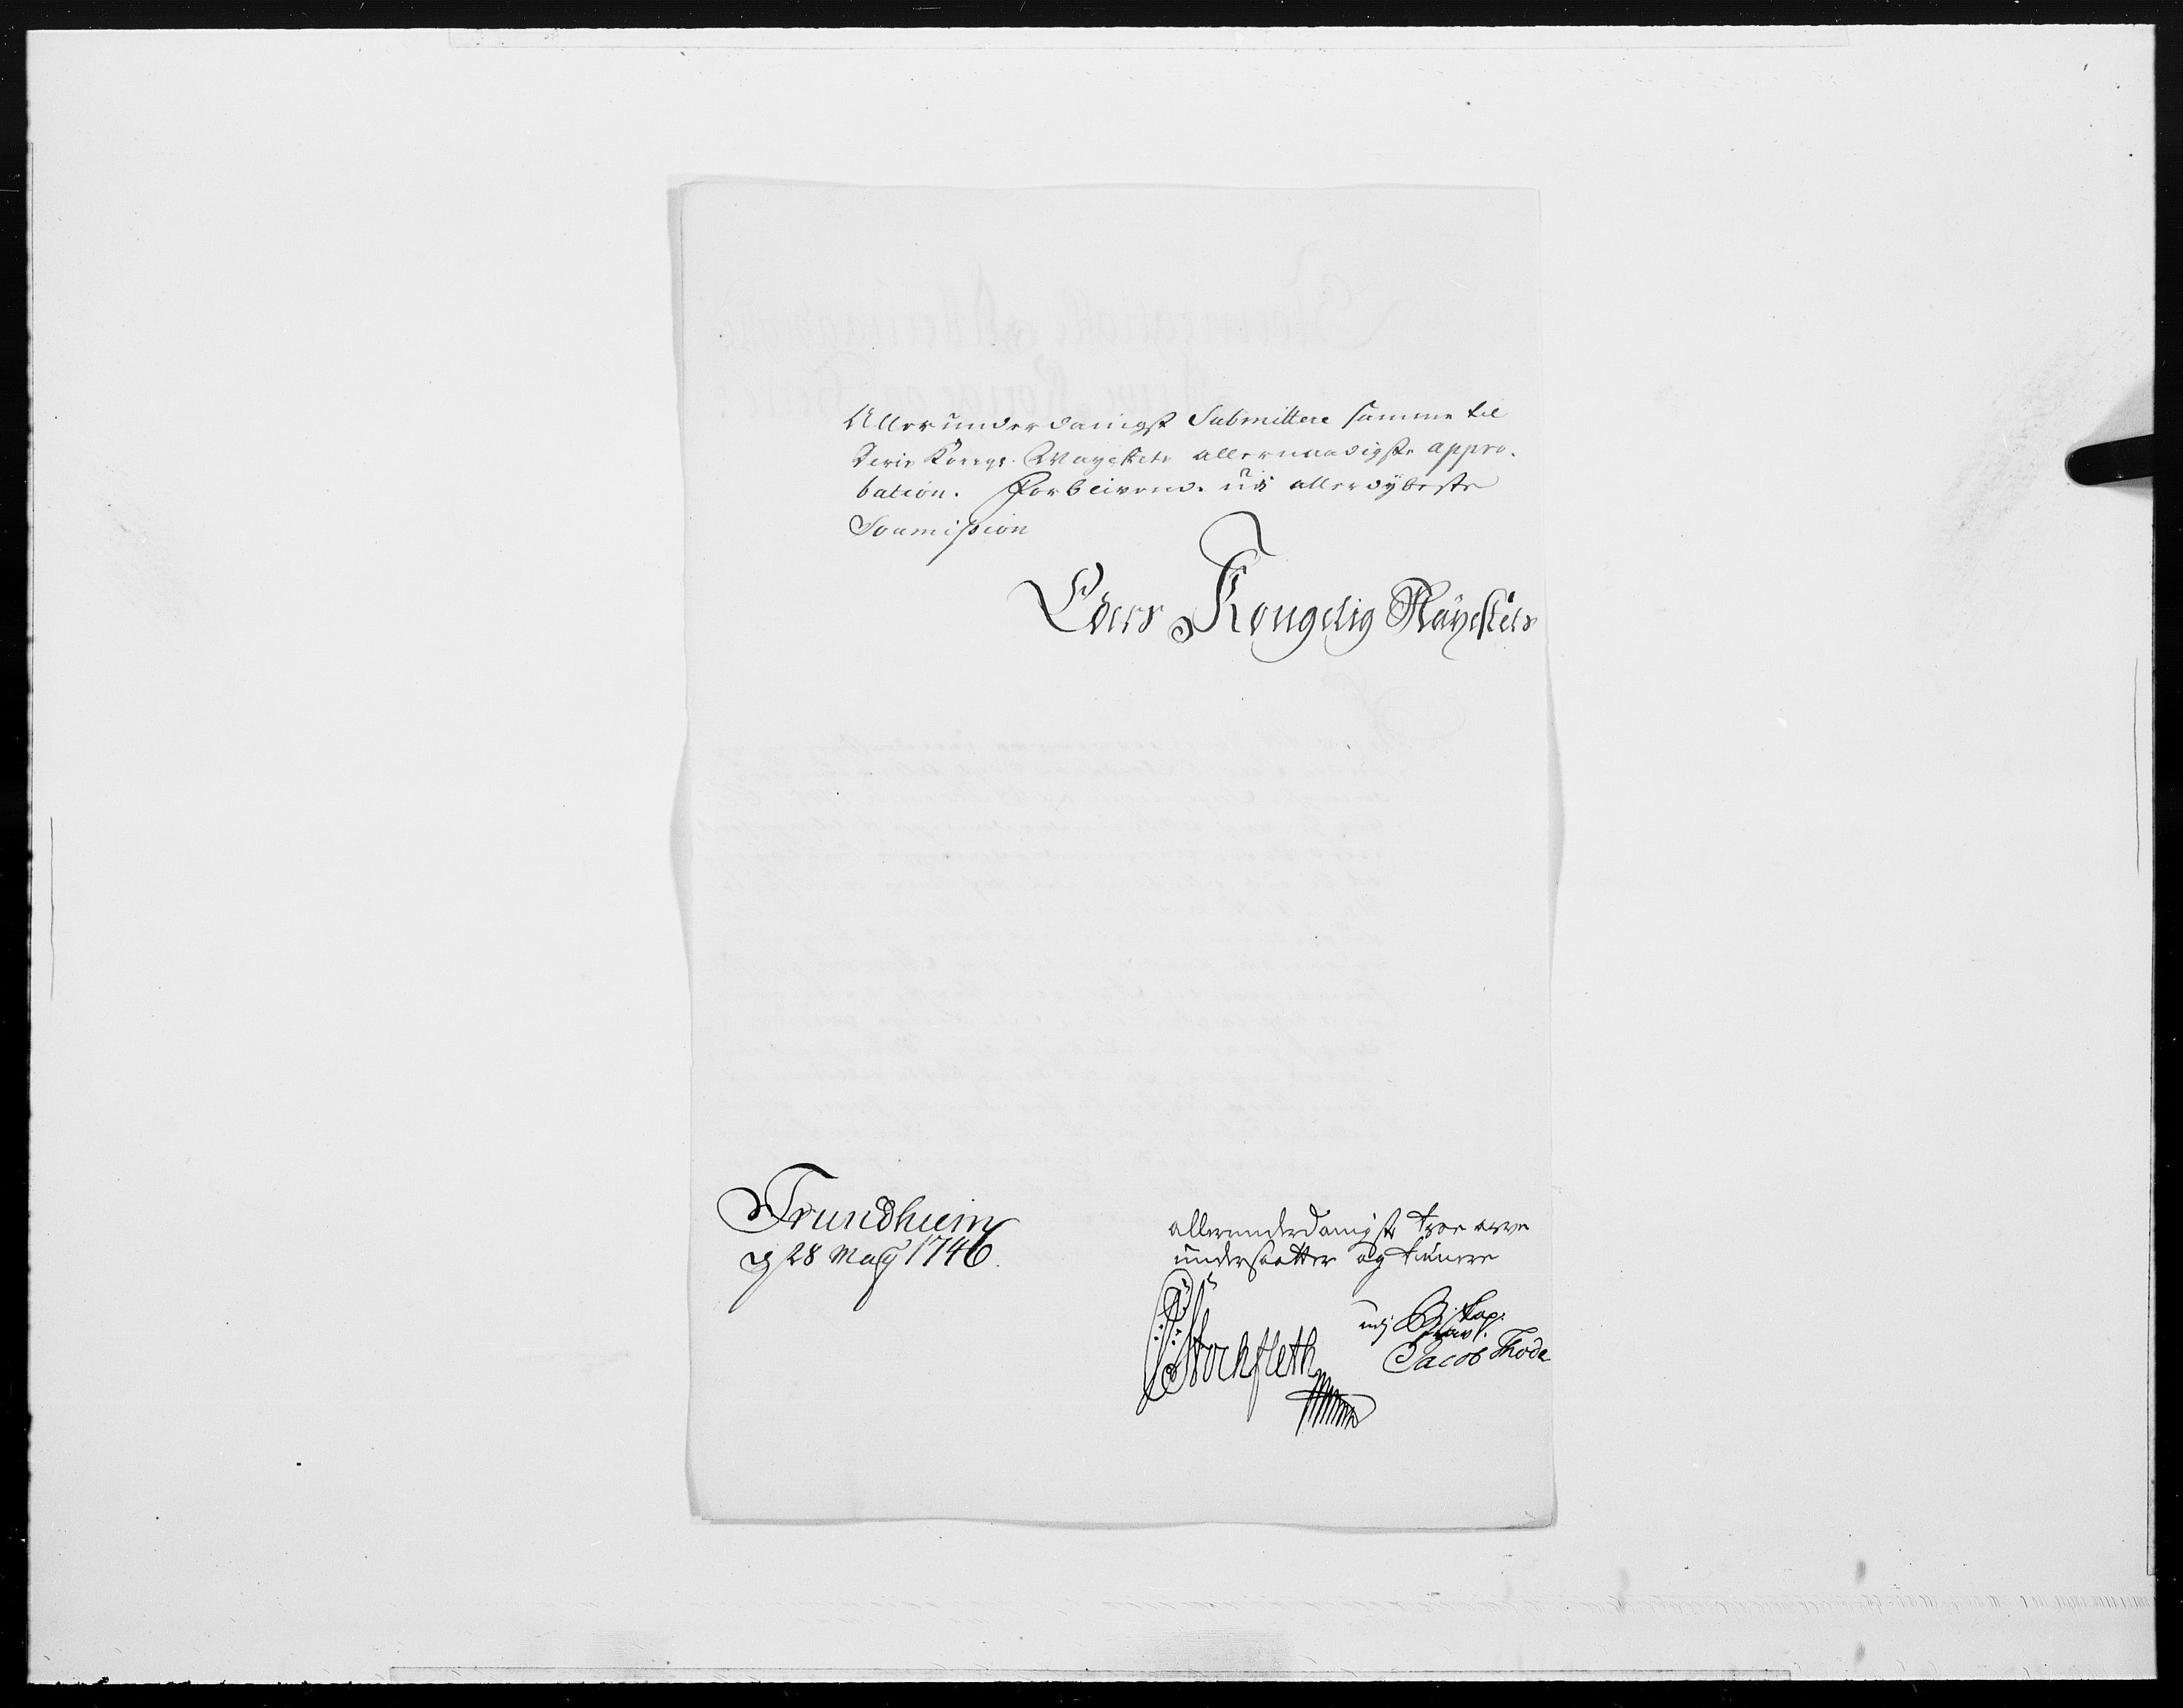 Allerunderdanigst Submittere samme til
Deris Kongl. Mayestets allernaadigste appro-
bation. Forblivende udi allerdybeste
Soumission
Eders Kongelig Mayestets
Trundhiem
d 28 May 1746.
allerunderdanigste troe arve
undersaatter og tienere
Stockfleth
udj Bispens
Jacob Thode